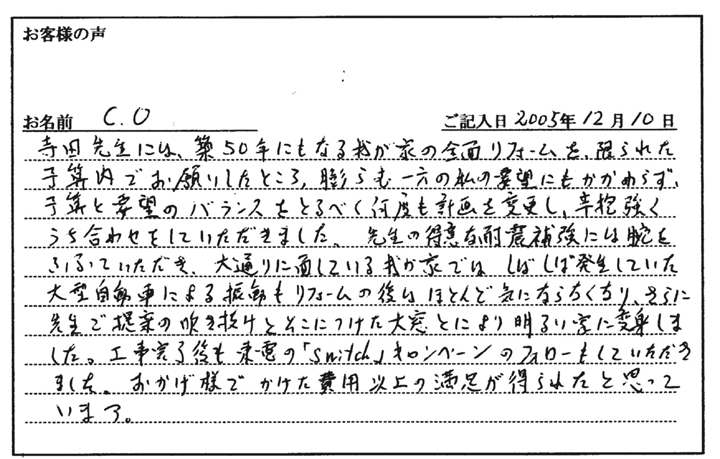 お客様の声
お名前 C.O ご記入日 2005年 12月 10日
寺田先生には、築50年にもなる我が家の全面リフォームを、限られた
予算内でお願いしたところ、膨らむ一方の私の要望にもかかわらず、
予算と要望のバランスをとるべく何度も計画を変更し、辛抱強く
うち合わせをしていただきました。先生の得意な耐震補強には腕を
ふるっていただき、大通りに面している我が家では しばしば発生していた
大型自動車による振動もリフォームの後は ほとんど気にならなくなり、さらに
先生ご提案の吹き抜けとそこにつけた大窓とにより明るい家に変身しま
した。工事完了後も東電の「Switch」キャンペーンのフォローもしていただき
ました。おかげ様で かけた費用以上の満足が得られたと思って
います。